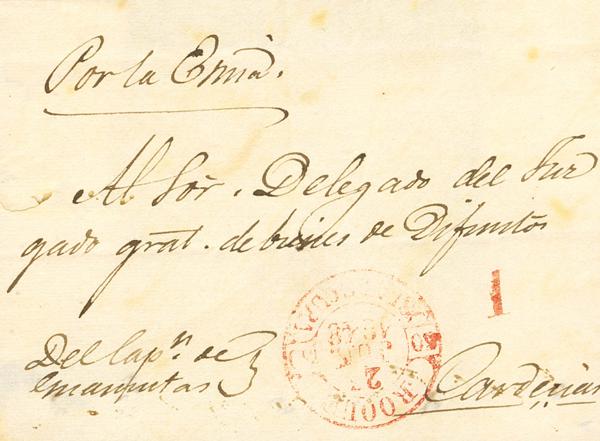 Por la Emã.
Al Sor. Delegado del Juz
gado gral. de bienes de Difuntos
1
Del Capn. de
Cardenas
2